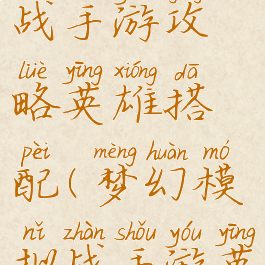 战手游攻
lüè yīng xióng dā
略英雄搭
pèi mèng huàn mó
配(梦幻模
nǐ zhàn shǒu yóu yīng
拟战手游英